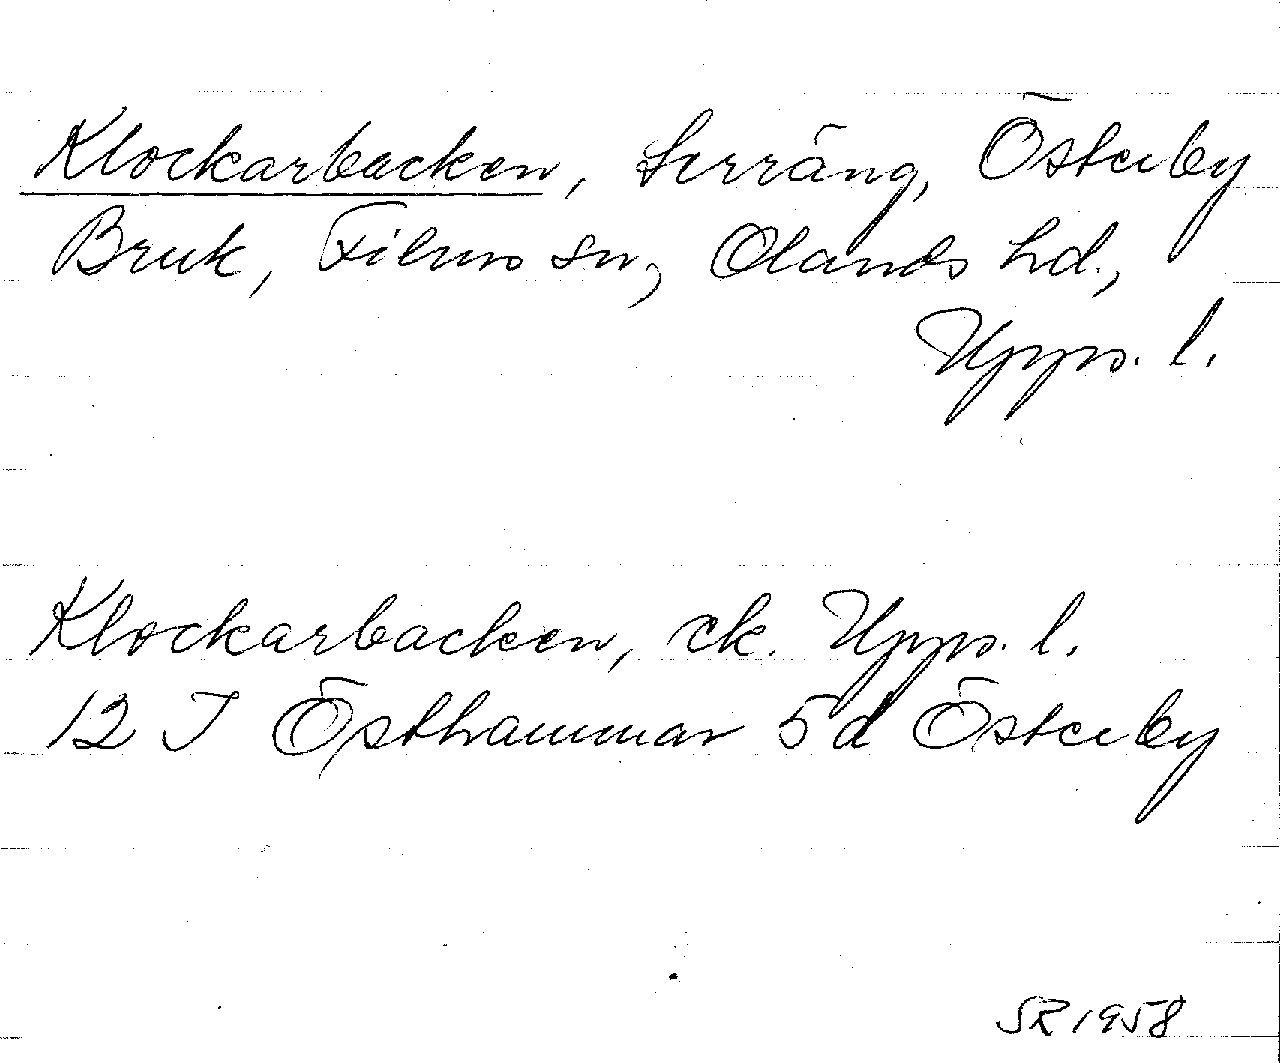 Klockarbacken, terräng, Österby
Bruk, Films sn, Olands hd.,
Upps. l.
Klockarbacken, ek. Upps. l.
12 I Östhammar 5d Österby
SR 1958